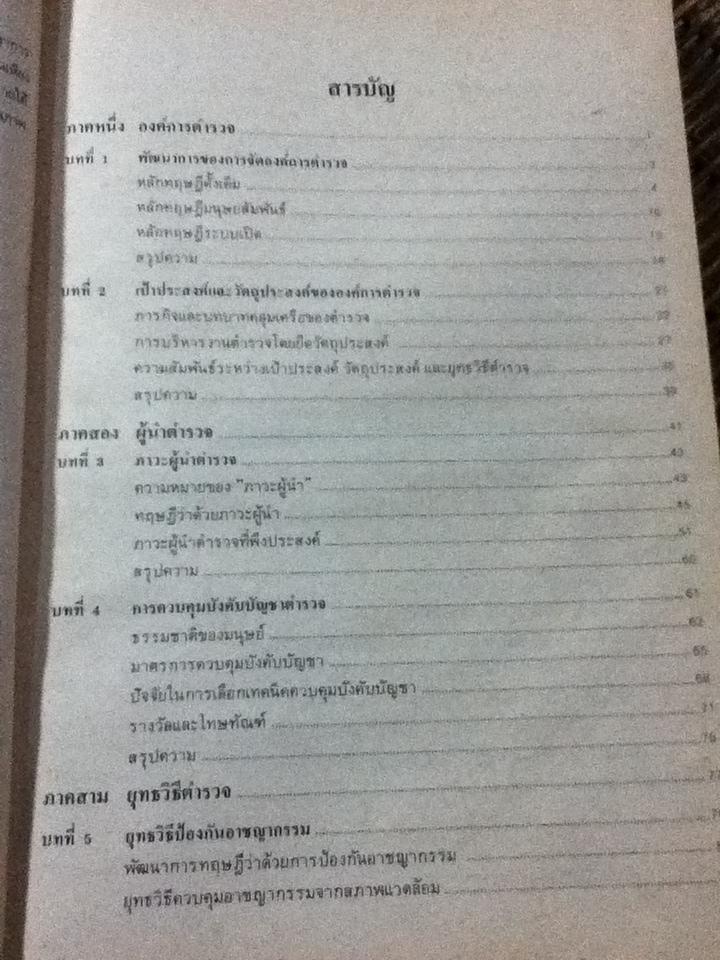 สารบัญ
ภาคหนึ่ง องค์การตำรวจ 1
บทที่ 1 พัฒนาการของการจัดองค์การตำรวจ 3
หลักทฤษฎีดั้งเดิม 4
หลักทฤษฎีมนุษยสัมพันธ์ 10
หลักทฤษฎีระบบเปิด
สรุปความ
บทที่ 2 เป้าประสงค์และวัตถุประสงค์ขององค์การตำรวจ 21
ภารกิจและบทบาทคลุมเครือของตำรวจ 22
การบริหารงานตำรวจโดยยึดวัตถุประสงค์ 27
ความสัมพันธ์ระหว่างเป้าประสงค์ วัตถุประสงค์ และยุทธวิธีตำรวจ
สรุปความ 39
ภาคสอง ผู้นำตำรวจ 41
บทที่ 3 ภาวะผู้นำตำรวจ 43
ความหมายของ "ภาวะผู้นำ" 43
ทฤษฎีว่าด้วยภาวะผู้นำ 45
ภาวะผู้นำตำรวจที่พึงประสงค์ 51
สรุปความ 60
บทที่ 4 การควบคุมบังคับบัญชาตำรวจ 61
ธรรมชาติของมนุษย์ 62
มาตรการควบคุมบังคับบัญชา 65
ปัจจัยในการเลือกเทคนิคควบคุมบังคับบัญชา 68
รางวัลและโทษทัณฑ์ 71
สรุปความ 76
ภาคสาม ยุทธวิธีตำรวจ
บทที่ 5 ยุทธวิธีป้องกันอาชญากรรม
พัฒนาการทฤษฎีว่าด้วยการป้องกันอาชญากรรม
ยุทธวิธีควบคุมอาชญากรรมจากสภาพแวดล้อม